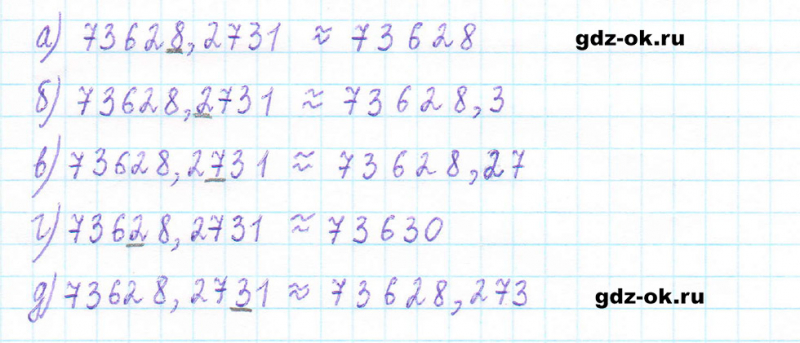 а) 73628,2731 ≈ 73628
gdz-ok.ru
б) 73628,2731 ≈ 73628,3
в) 73628,2731 ≈ 73628,27
г) 73628,2731 ≈ 73630
д) 73628,2731 ≈ 73628,273
gdz-ok.ru